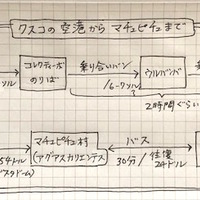 クスコの空港から マチュピチュまで
コレクティーボ
のりば
乗り合いバン
ウルバンバ
ソル
2時間ぐらい
マチュピチュ村
(アグアスカリエンテス)
バス
30分/往復
24ドル
54ドル
スタドーム)